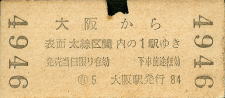 4946
大阪から
表面太線区間内の1駅ゆき
発売当日限り有効 下車前途無効
5 大阪駅発行 84
4946